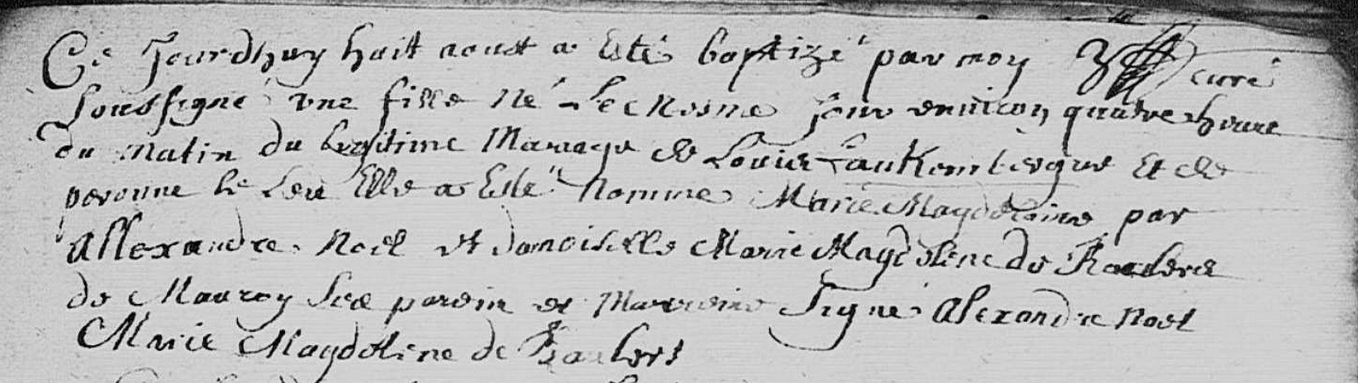 Ce Jourdhuy huit aoust a Esté baptizé par moy curé
soussigné une fille né le mesme jour environ quatre heure
du matin du legitime Mariage de Louis Faukembergue Et de
peronne le Leu Elle a Esté nommé Marie Magdeleine par
Allexandre Noel et damoiselle Marie Magdelene de
de Mauroy ses parein et Mareine signé Alexandre Noel
Marie Magdelene de